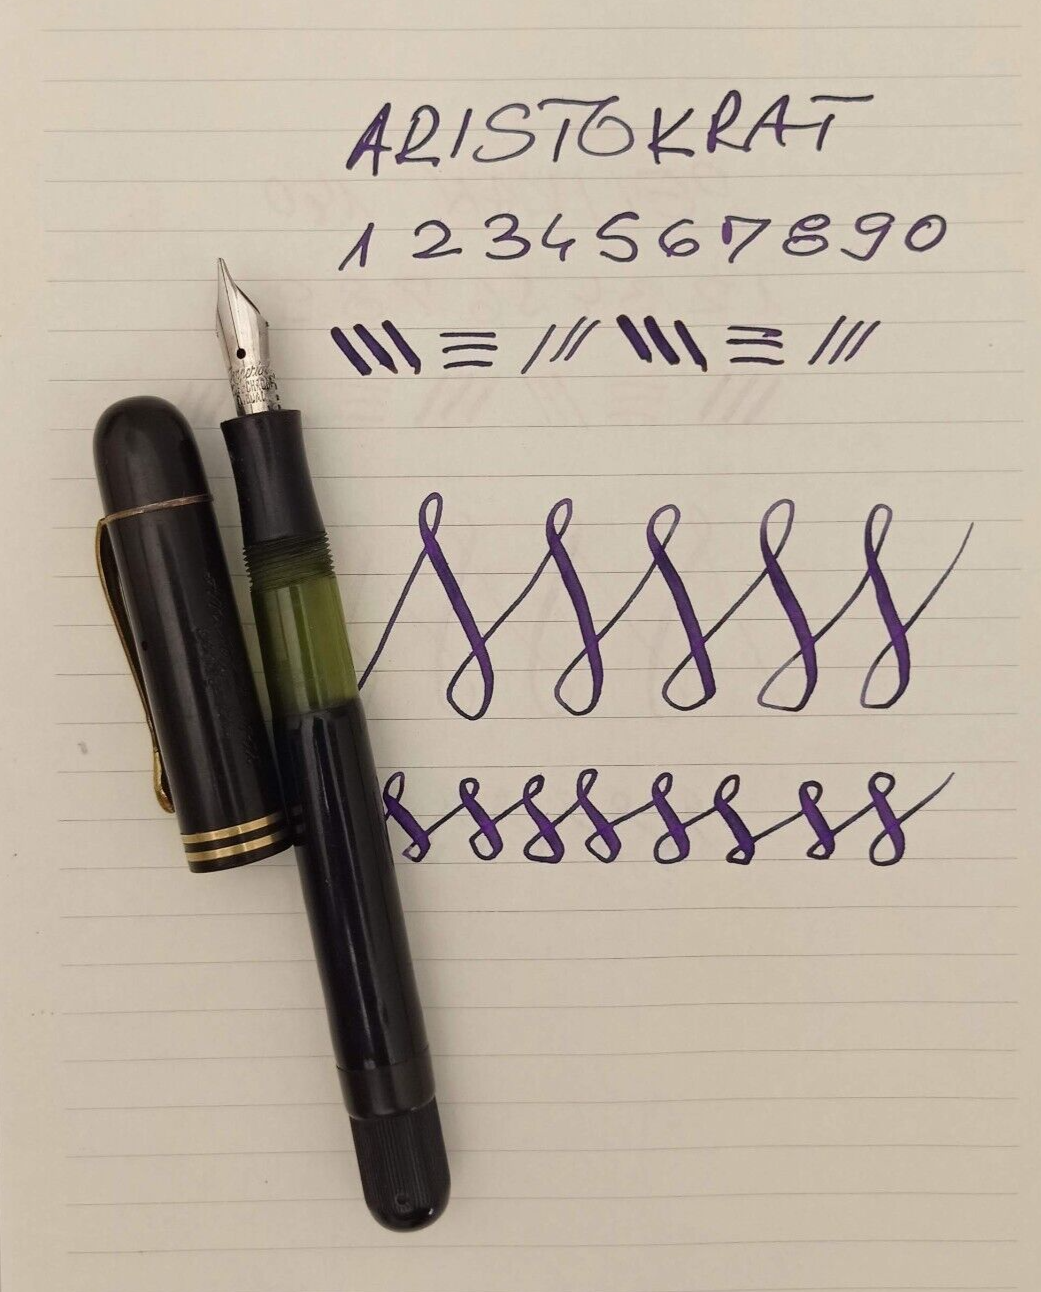 ARISTOKRAT
1 2 3 4 5 6 7 8 9 0